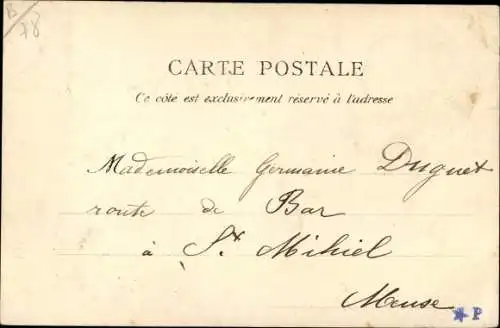 78
CARTE POSTALE
Ce côté est exclusivement réservé à l'adresse
Mademoiselle Germaine Duguet
route de Bar
à St Mihiel
Meuse
P